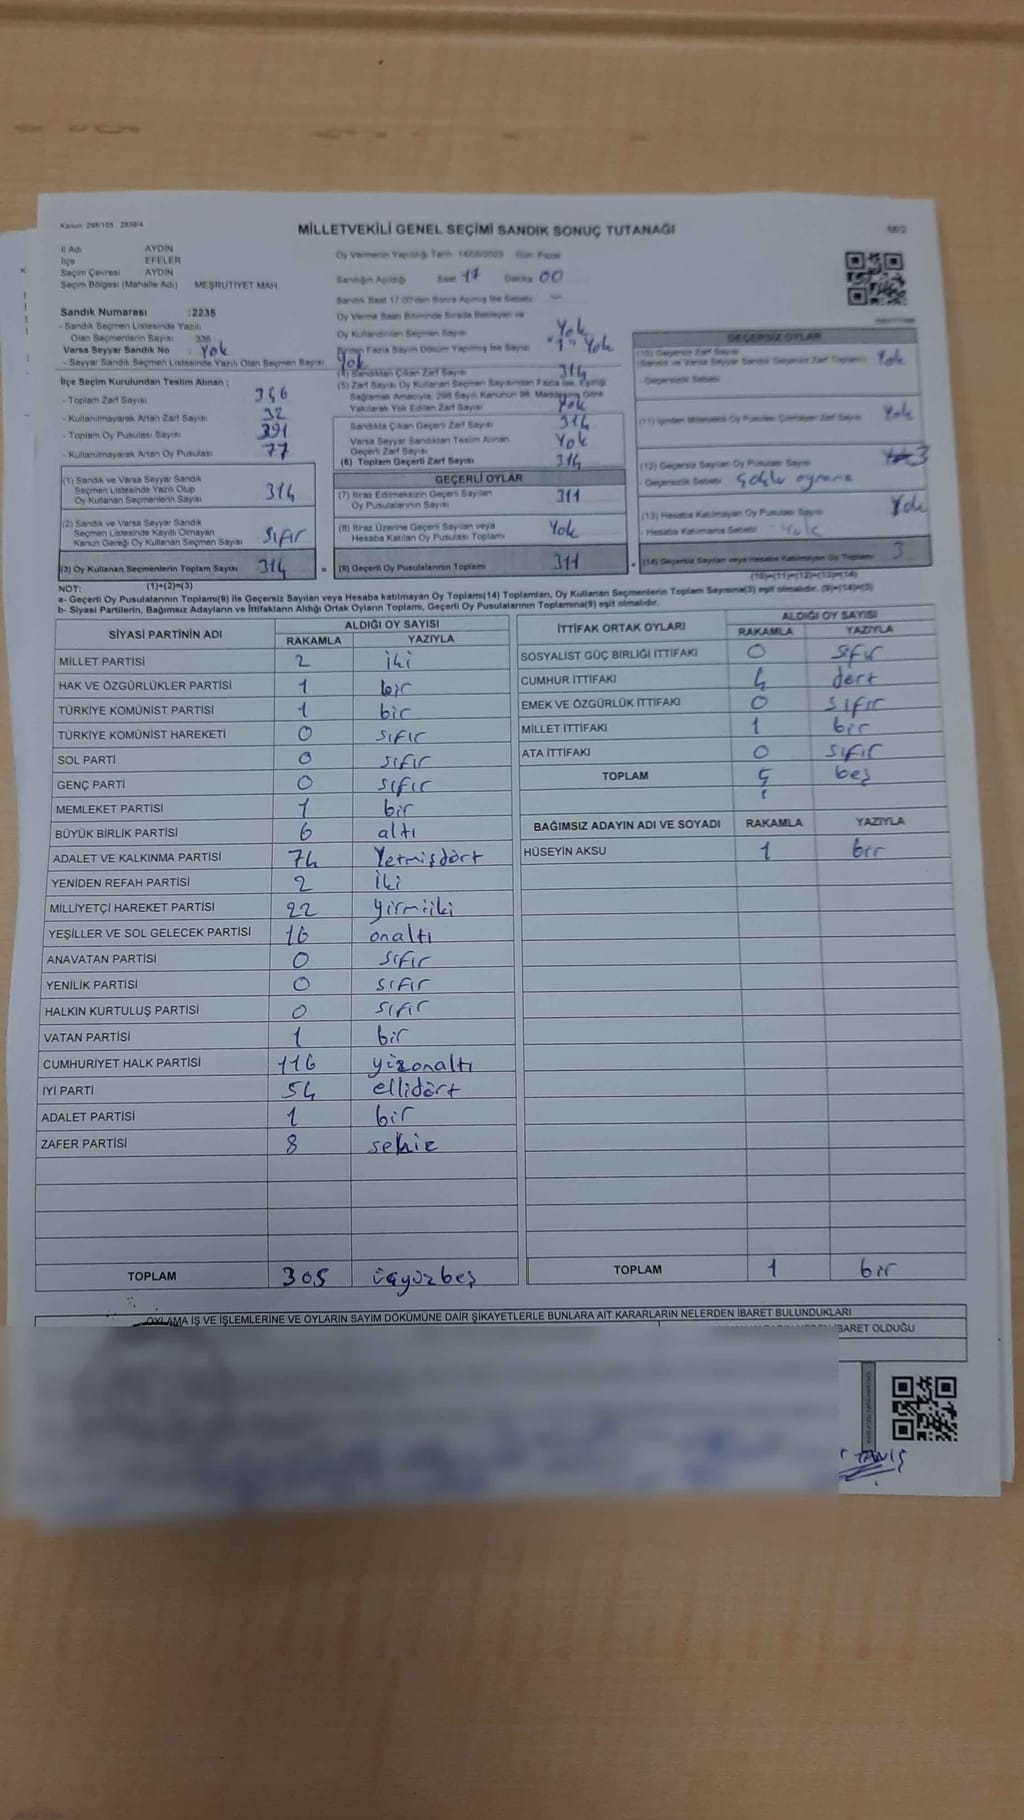 Kanun: 298/105 - 2839/4
MİLLETVEKİLİ GENEL SEÇİMİ SANDIK SONUÇ TUTANAĞI
İl Adı AYDIN
İlçe EFELER
Seçim Çevresi AYDIN
Seçim Bölgesi (Mahalle Adı) MEŞRUTİYET MAH.
Sandık Numarası : 2235
- Sandık Seçmen Listesinde Yazılı
Olan Seçmenlerin Sayısı 336
Varsa Seyyar Sandık No : Yok
- Seyyar Sandık Seçmen Listesinde Yazılı Olan Seçmen Sayısı Yok
İlçe Seçim Kurulundan Teslim Alınan ;
- Toplam Zarf Sayısı 346
- Kullanılmayarak Artan Zarf Sayısı 32
- Toplam Oy Pusulası Sayısı 391
- Kullanılmayarak Artan Oy Pusulası 77
(1) Sandık ve Varsa Seyyar Sandık
Seçmen Listesinde Yazılı Olup
Oy Kullanan Seçmenlerin Sayısı 314
(2) Sandık ve Varsa Seyyar Sandık
Seçmen Listesinde Kayıtlı Olmayan
Kanun Gereği Oy Kullanan Seçmen Sayısı SIFIR
(3) Oy Kullanan Seçmenlerin Toplam Sayısı 314
(1)+(2)=(3)
Oy Vermenin Yapıldığı Tarih 14/05/2023 Gün Pazar
Sandığın Açıldığı Saat 17 Dakika 00
Sandık Saat 17:00'den Sonra Açılmış İse Sebebi —
Oy Verme Saati Bitiminde Sırada Bekleyen ve
Oy Kullandırılan Seçmen Sayısı Yok
Birden Fazla Sayım Döküm Yapılmış İse Sayısı "1" Yok
(4) Sandıktan Çıkan Zarf Sayısı 314
(5) Zarf Sayısı Oy Kullanan Seçmen Sayısından Fazla İse, Eşitliği
Sağlamak Amacıyla, 298 Sayılı Kanunun 98. Maddesine Göre
Yakılarak Yok Edilen Zarf Sayısı Yok
Sandıkta Çıkan Geçerli Zarf Sayısı 314
Varsa Seyyar Sandıktan Teslim Alınan
Geçerli Zarf Sayısı Yok
(6) Toplam Geçerli Zarf Sayısı 314
GEÇERLİ OYLAR
(7) İtiraz Edilmeksizin Geçerli Sayılan
Oy Pusulalarının Sayısı 311
(8) İtiraz Üzerine Geçerli Sayılan veya
Hesaba Katılan Oy Pusulası Toplamı Yok
(9) Geçerli Oy Pusulalarının Toplamı 311
GEÇERSİZ OYLAR
(10) Geçersiz Zarf Sayısı
(Sandık ve Varsa Seyyar Sandık Geçersiz Zarf Toplamı) Yok
- Geçersizlik Sebebi
Yok
(12) Geçersiz Sayılan Oy Pusulası Sayısı 3
- Geçersizlik Sebebi
(13) Hesaba Katılmayan Oy Pusulası Sayısı Yok
- Hesaba Katılmama Sebebi Yok
(14) Geçersiz Sayılan veya Hesaba Katılmayan Oy Toplamı 3
(10)+(11)+(12)+(13)=(14)
NOT:
a- Geçerli Oy Pusulalarının Toplamı(9) ile Geçersiz Sayılan veya Hesaba katılmayan Oy Toplamı(14) Toplamları, Oy Kullanan Seçmenlerin Toplam Sayısına(3) eşit olmalıdır. (9)+(14)=(3)
b- Siyasi Partilerin, Bağımsız Adayların ve İttifakların Aldığı Ortak Oyların Toplamı, Geçerli Oy Pusulalarının Toplamına(9) eşit olmalıdır.
SİYASİ PARTİNİN ADI ALDIĞI OY SAYISI
RAKAMLA YAZIYLA
MİLLET PARTİSİ 2 iki
HAK VE ÖZGÜRLÜKLER PARTİSİ 1 bir
TÜRKİYE KOMÜNİST PARTİSİ 1 bir
TÜRKİYE KOMÜNİST HAREKETİ 0 sıfır
SOL PARTİ 0 sıfır
GENÇ PARTİ 0 sıfır
MEMLEKET PARTİSİ 1 bir
BÜYÜK BİRLİK PARTİSİ 6 altı
ADALET VE KALKINMA PARTİSİ 74 Yetmişdört
YENİDEN REFAH PARTİSİ 2 iki
MİLLİYETÇİ HAREKET PARTİSİ 22 yirmiiki
YEŞİLLER VE SOL GELECEK PARTİSİ 16 onaltı
ANAVATAN PARTİSİ 0 sıfır
YENİLİK PARTİSİ 0 sıfır
HALKIN KURTULUŞ PARTİSİ 0 sıfır
VATAN PARTİSİ 1 bir
CUMHURİYET HALK PARTİSİ 116 yüzonaltı
İYİ PARTİ 54 ellidört
ADALET PARTİSİ 1 bir
ZAFER PARTİSİ 8 sekiz
TOPLAM 305 üçyüzbeş
İTTİFAK ORTAK OYLARI ALDIĞI OY SAYISI
RAKAMLA YAZIYLA
SOSYALİST GÜÇ BİRLİĞİ İTTİFAKI 0 sıfır
CUMHUR İTTİFAKI 4 dört
EMEK VE ÖZGÜRLÜK İTTİFAKI 0 sıfır
MİLLET İTTİFAKI 1 bir
ATA İTTİFAKI 0 sıfır
TOPLAM 5 beş
BAĞIMSIZ ADAYIN ADI VE SOYADI RAKAMLA YAZIYLA
HÜSEYİN AKSU 1 bir
TOPLAM 1 bir
OYLAMA İŞ VE İŞLEMLERİNE VE OYLARIN SAYIM DÖKÜMÜNE DAİR ŞİKAYETLERLE BUNLARA AİT KARARLARIN NELERDEN İBARET BULUNDUKLARI
İBARET OLDUĞU
TANIŞ